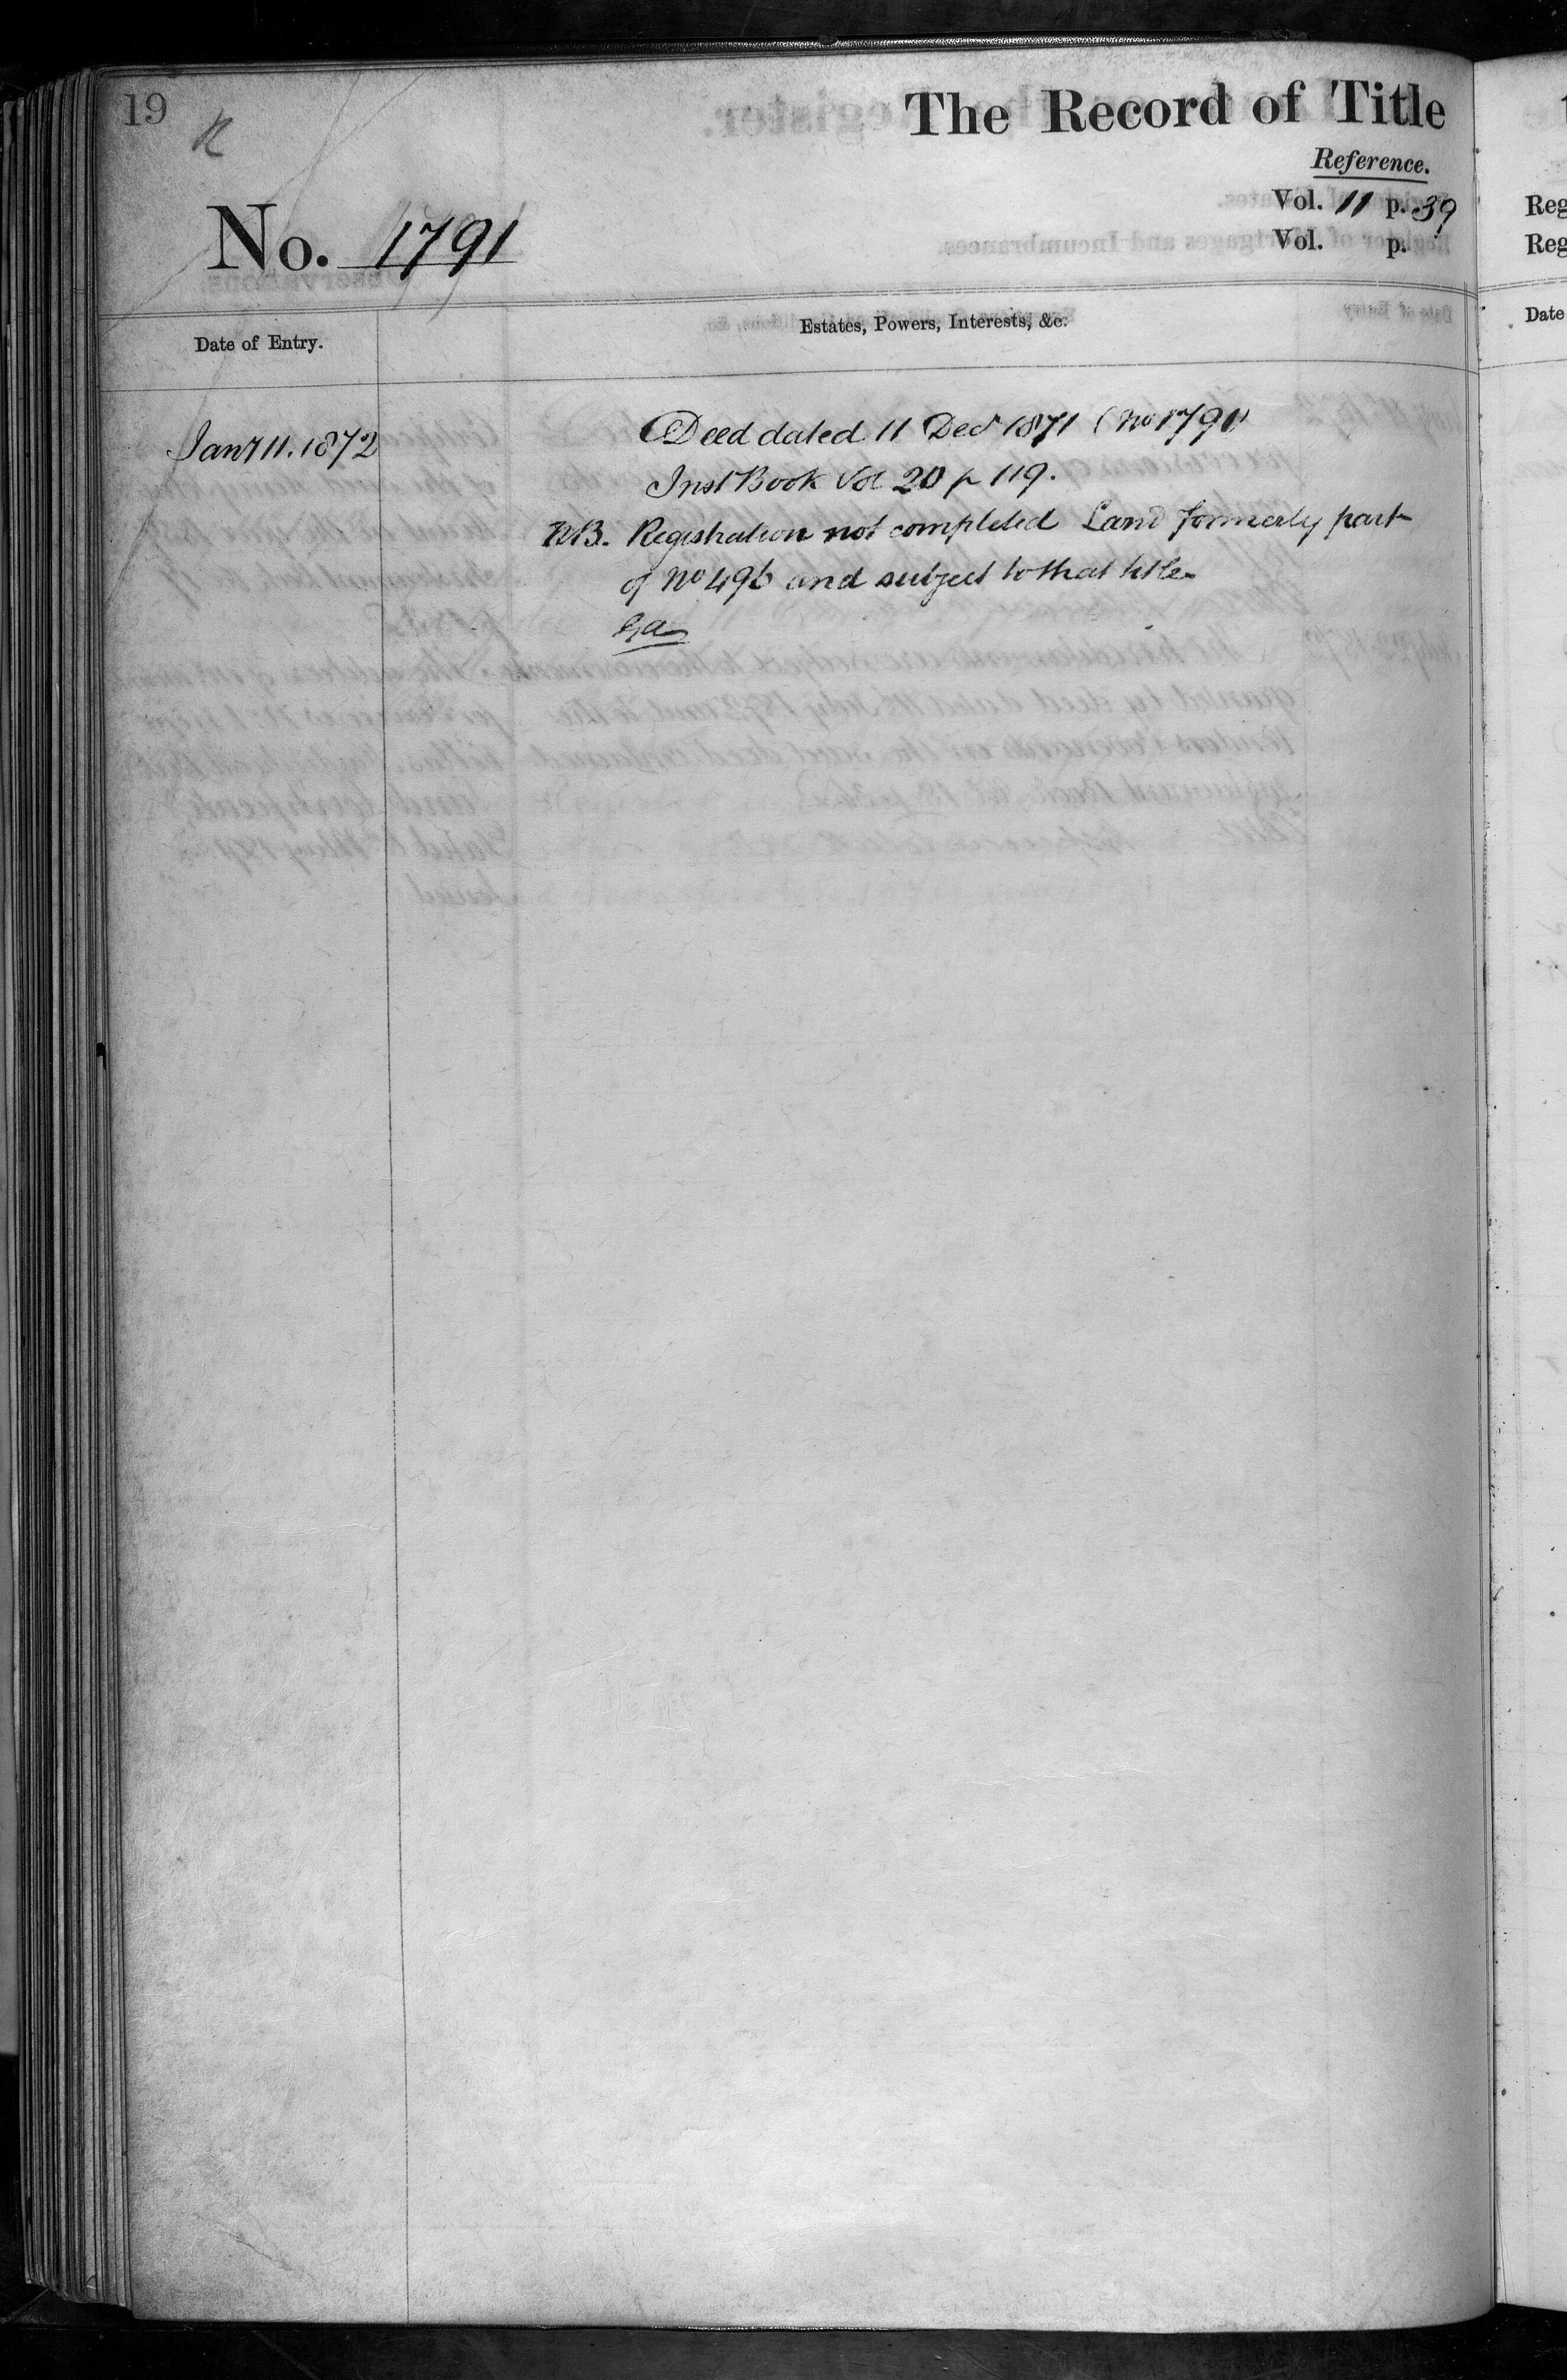 19
R
The Record of Title
Reference.
Vol. 11 p. 39
Vol. p.
No. 1791
Date of Entry.
Estates, Powers, Interests, &c.
Jany 11. 1872
Deed dated 11 Decr 1871 (No 1791)
Inst Book Vol 20 p 119.
NB. Registration not completed Land formerly part
of No 496 and subject to that title
Reg
Reg
Date